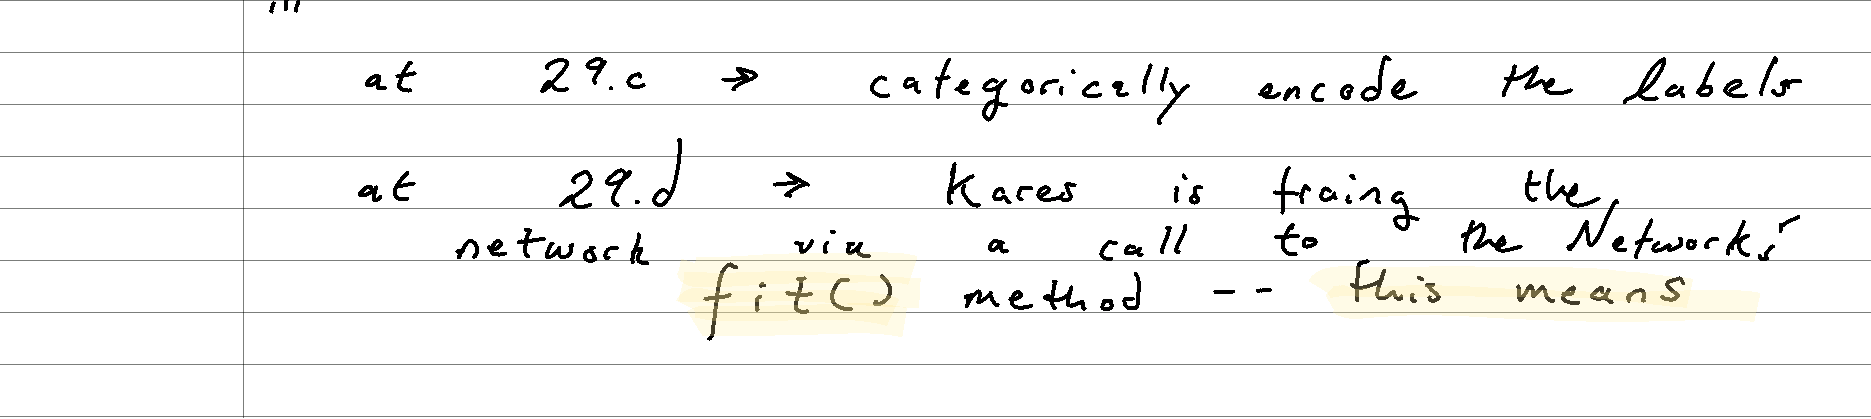 at 29.c → categorically encode the labels
at 29.d → Kares is fraing the
network via a call to the Networks'
fit() method -- this means